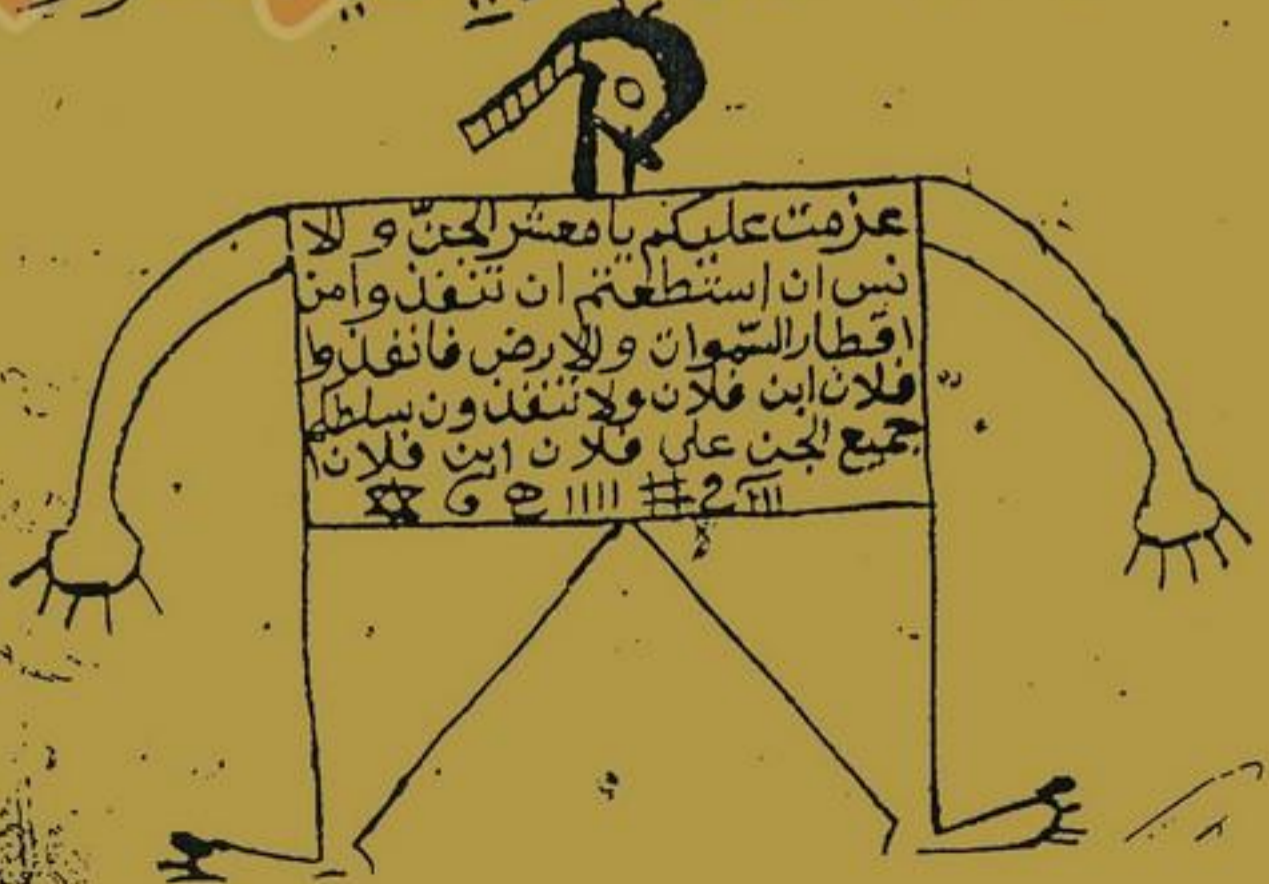 عزمت عليكم يا معشر الجنّ و الا
نس ان استطعتم ان تنفذوا من
اقطار السّموات والارض فانفذوا
فلان ابن فلان ولا تنفذون سلطكم
جميع الجن علي فلان ابن فلان